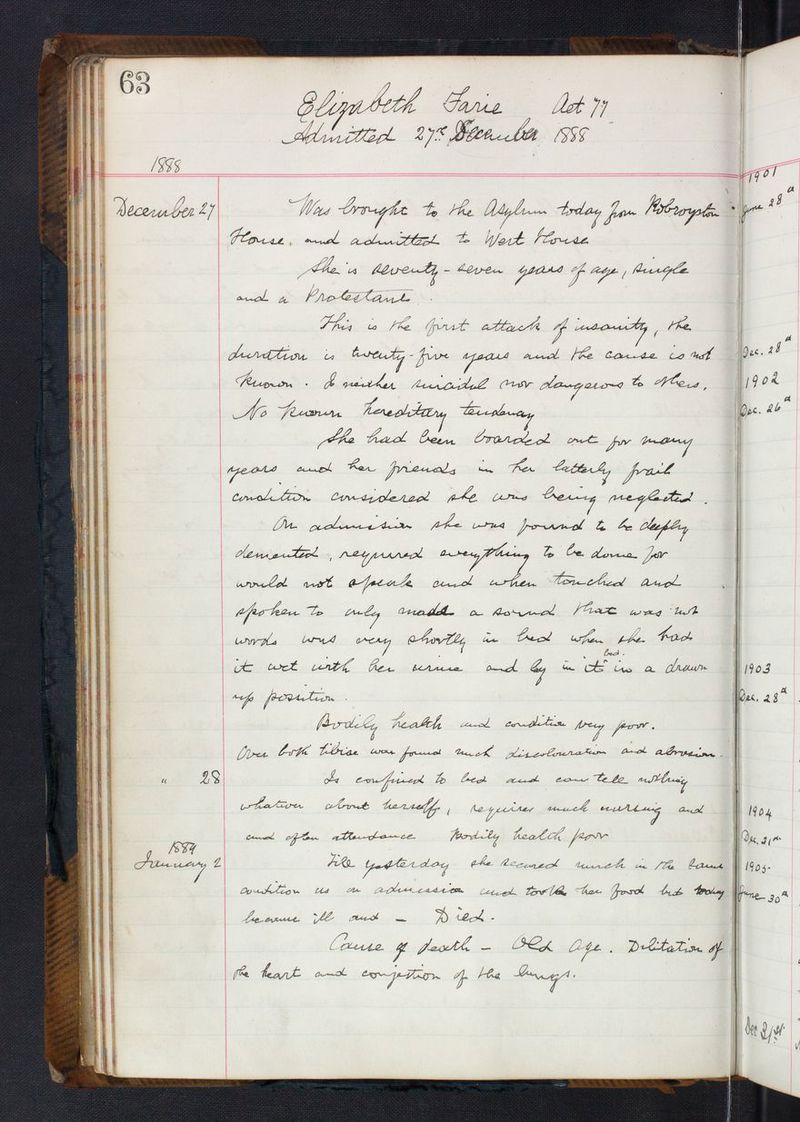 63
Elizabeth Farie Aet 77
Admitted 27th December 1888
1888
December 27 Was brought to the Asylum today from Robroyston
House, and admitted to West House
She is seventy-seven years of age, single
and a Protestant.
This is the first attack of insanity, the
duration is twenty-five years and the cause is not
known. Is neither suicidal nor dangerous to others.
No known hereditary tendency
She had been boarded out for many
years and her friends in her latterly frail
condition considered she was being neglected.
On admission she was found to be deeply
demented, required everything to be done for
would not speak and when touched and
spoken to only made a sound that was not
words was very shortly in bed when she had
it wet with her urine and lay in it bed in a drawn
up position.
Bodily health and condition very poor.
Over both tibiae was found much discolouration and abrasion.
" 28 Is confined to bed and can tell nothing
whatever about herself, requires much nursing and
and often attendance Bodily health poor
1889
January 2 Till yesterday she seemed much in the same
condition as on admission and took her food but today
became ill and - Died.
Cause of death - Old Age. Dilitation of
the heart and conjestion of the lungs.
1901
June 28th
Dec. 28th
1902
Dec. 26th
1903
Dec. 28th
1904
Dec. 21st
1905
June 30th
Dec 21st